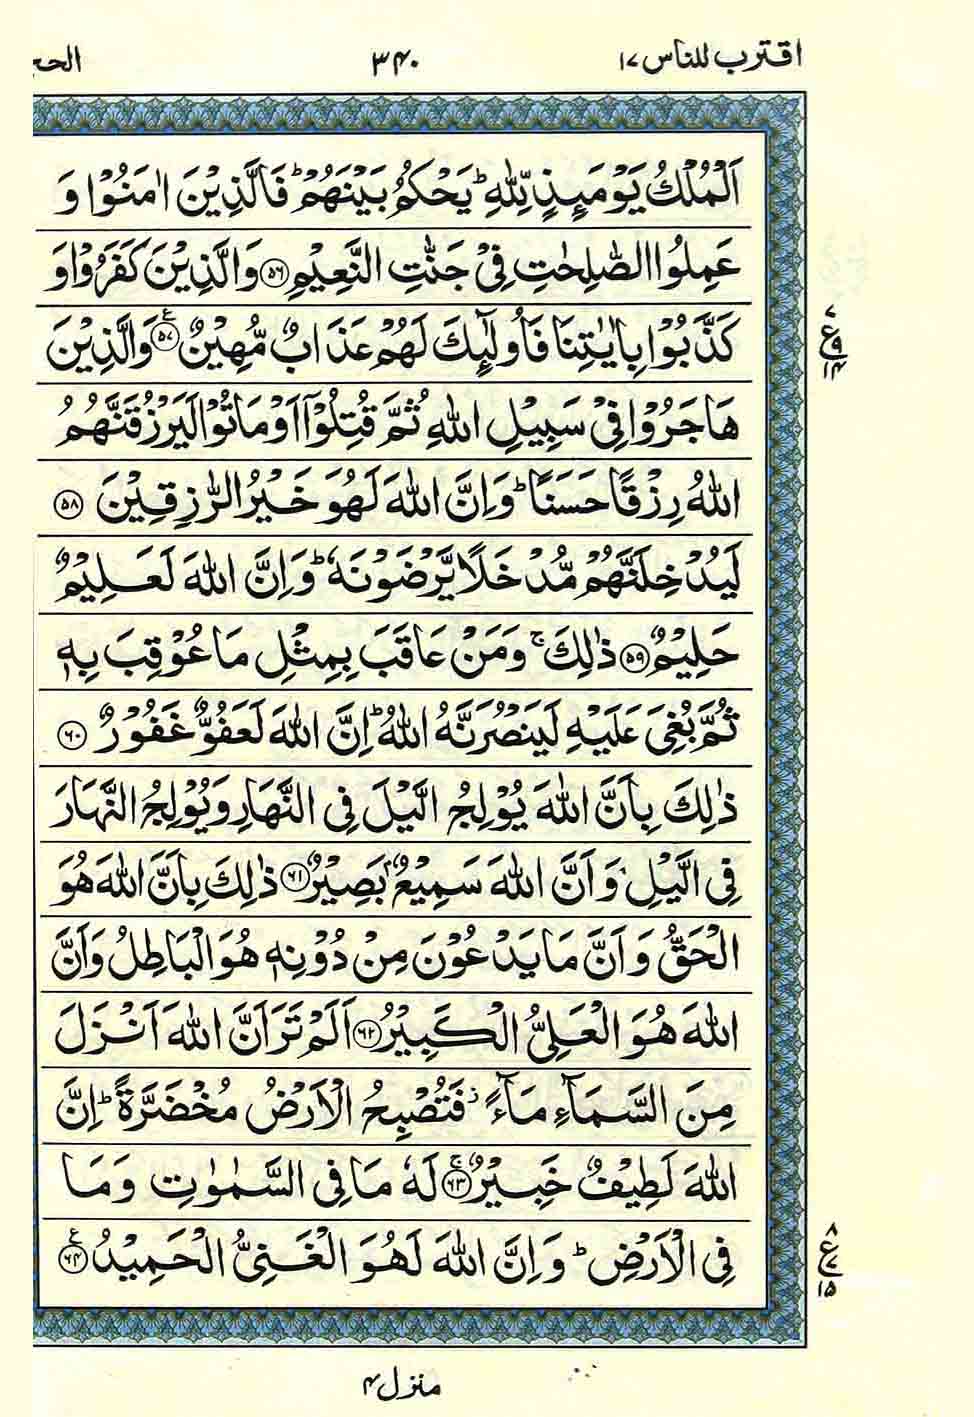 اقترب للناس ۱۷
۳۴۰
الحج
اَلْمُلْكُ يَوْمَىِٕذٍ لِّلّٰهِ ؕ يَحْكُمُ بَيْنَهُمْ ؕ فَالَّذِيْنَ اٰمَنُوْا وَ
عَمِلُوا الصّٰلِحٰتِ فِىْ جَنّٰتِ النَّعِيْمِ ﴿۵۶﴾ وَالَّذِيْنَ كَفَرُوْا وَ
كَذَّبُوْا بِاٰيٰتِنَا فَاُولٰٓىِٕكَ لَهُمْ عَذَابٌ مُّهِيْنٌ ﴿۵۷﴾ ع وَالَّذِيْنَ
ع ۷ ۹ ۱۴
هَاجَرُوْا فِىْ سَبِيْلِ اللّٰهِ ثُمَّ قُتِلُوْۤا اَوْ مَاتُوْا لَيَرْزُقَنَّهُمُ
اللّٰهُ رِزْقًا حَسَنًا ؕ وَاِنَّ اللّٰهَ لَهُوَ خَيْرُ الرّٰزِقِيْنَ ﴿۵۸﴾
لَيُدْخِلَنَّهُمْ مُّدْخَلًا يَّرْضَوْنَهٗ ؕ وَاِنَّ اللّٰهَ لَعَلِيْمٌ
حَلِيْمٌ ﴿۵۹﴾ ذٰلِكَ ۚ وَمَنْ عَاقَبَ بِمِثْلِ مَا عُوْقِبَ بِهٖ
ثُمَّ بُغِىَ عَلَيْهِ لَيَنْصُرَنَّهُ اللّٰهُ ؕ اِنَّ اللّٰهَ لَعَفُوٌّ غَفُوْرٌ ﴿۶۰﴾
ذٰلِكَ بِاَنَّ اللّٰهَ يُوْلِجُ الَّيْلَ فِى النَّهَارِ وَيُوْلِجُ النَّهَارَ
فِى الَّيْلِ وَاَنَّ اللّٰهَ سَمِيْعٌۢ بَصِيْرٌ ﴿۶۱﴾ ذٰلِكَ بِاَنَّ اللّٰهَ هُوَ
الْحَقُّ وَاَنَّ مَا يَدْعُوْنَ مِنْ دُوْنِهٖ هُوَ الْبَاطِلُ وَاَنَّ
اللّٰهَ هُوَ الْعَلِىُّ الْكَبِيْرُ ﴿۶۲﴾ اَلَمْ تَرَ اَنَّ اللّٰهَ اَنْزَلَ
مِنَ السَّمَآءِ مَآءً ؗ فَتُصْبِحُ الْاَرْضُ مُخْضَرَّةً ؕ اِنَّ
اللّٰهَ لَطِيْفٌ خَبِيْرٌ ﴿۶۳﴾ ۚ لَهٗ مَا فِى السَّمٰوٰتِ وَمَا
فِى الْاَرْضِ ؕ وَاِنَّ اللّٰهَ لَهُوَ الْغَنِىُّ الْحَمِيْدُ ﴿۶۴﴾ ع
ع ۸ ۱۵
منزل ۴